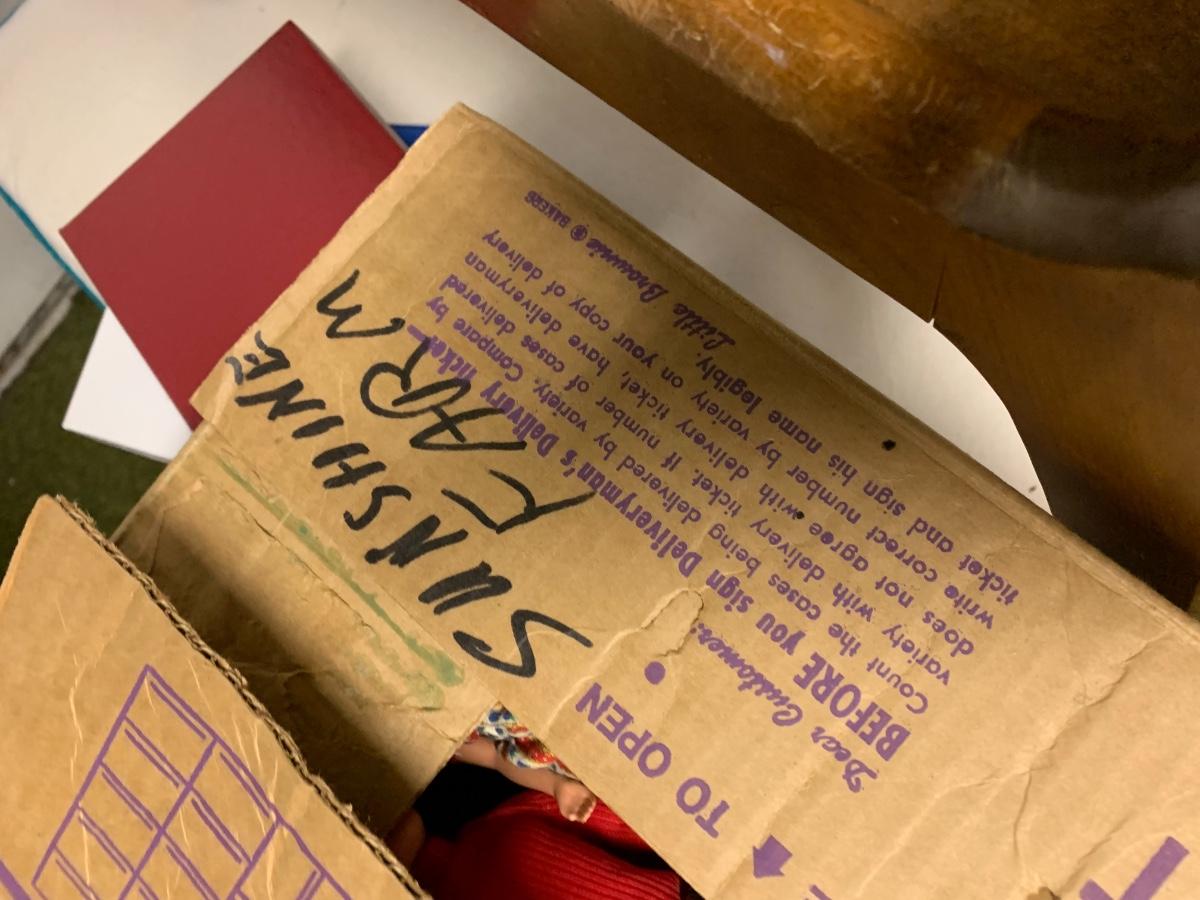 SUNSHINE
FARM
TO OPEN
Dear Customer:
BEFORE you sign Deliveryman's Delivery ticket
Count the cases being delivered by variety. Compare by
variety with delivery ticket. If number of cases delivered
does not agree with delivery ticket, have deliveryman
write correct number by variety on your copy of delivery
ticket and sign his name legibly.
Little Brownie BAKERS